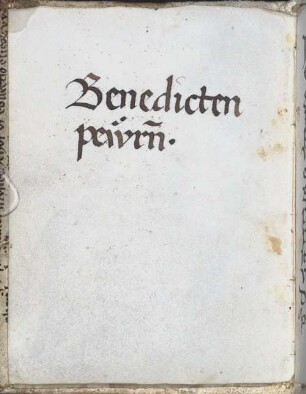 Benedicten
peẅrn̄.